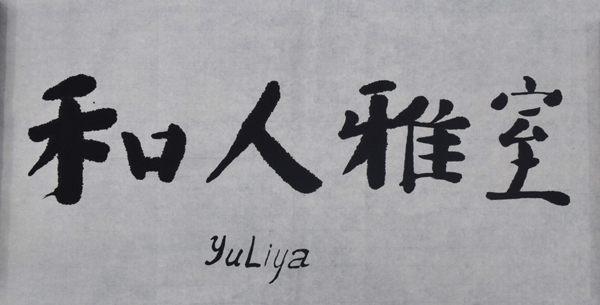 和人雅室
YuLiya